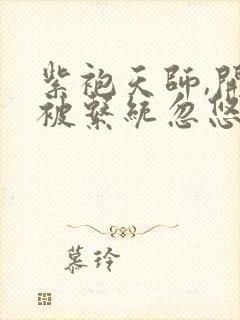 紫袍天師,開
被繫統忽悠
慕玲